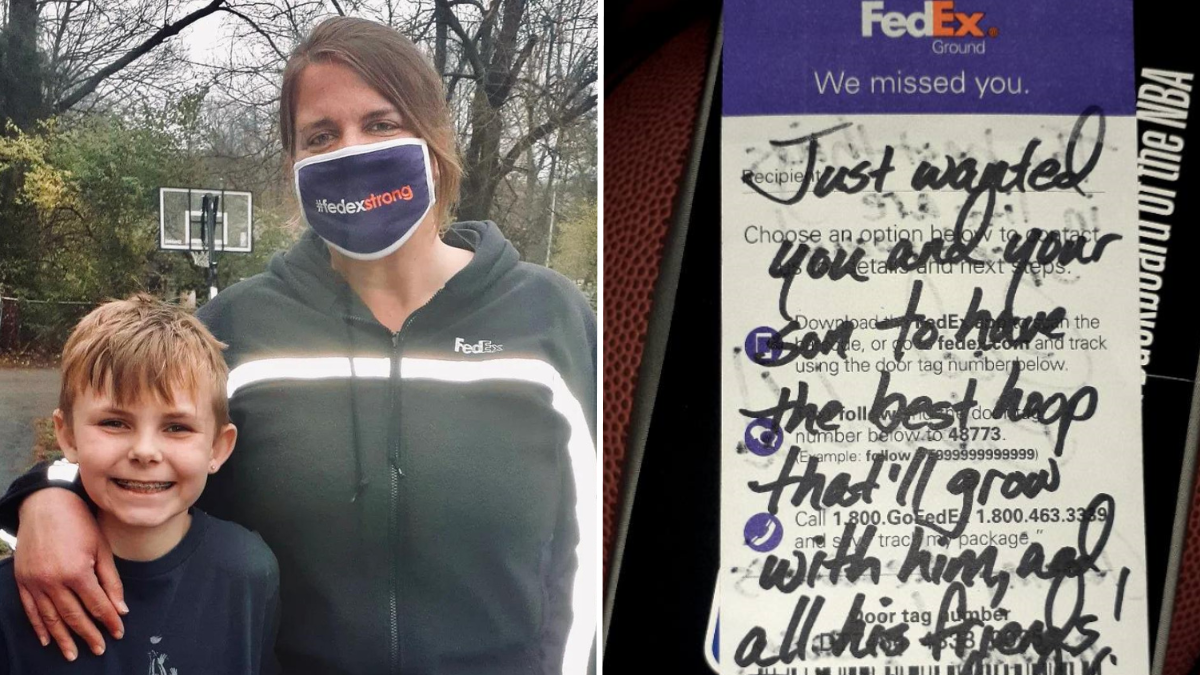 #fedexstrong
FedEx
FedEx
Ground
We missed you.
Recipient
Choose an option below to contact
us for details and next steps.
Download the FedEx app to scan the
or go to fedex.com and track
using the door tag number below.
follow the door tag
number below to 48773.
(Example: follow 999999999999)
Call 1.800.GoFedEx 1.800.463.3339
and say "track my package."
Door tag number
Just wanted
you and your
son to have
the best hoop
that'll grow
with him, and
all his friends!
Backboard of the NBA